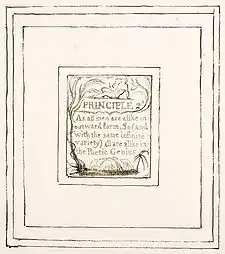 PRINCIPLE 2
As all men are alike in
outward form, So (and
with the same infinite
variety) all are alike in
the Poetic Genius